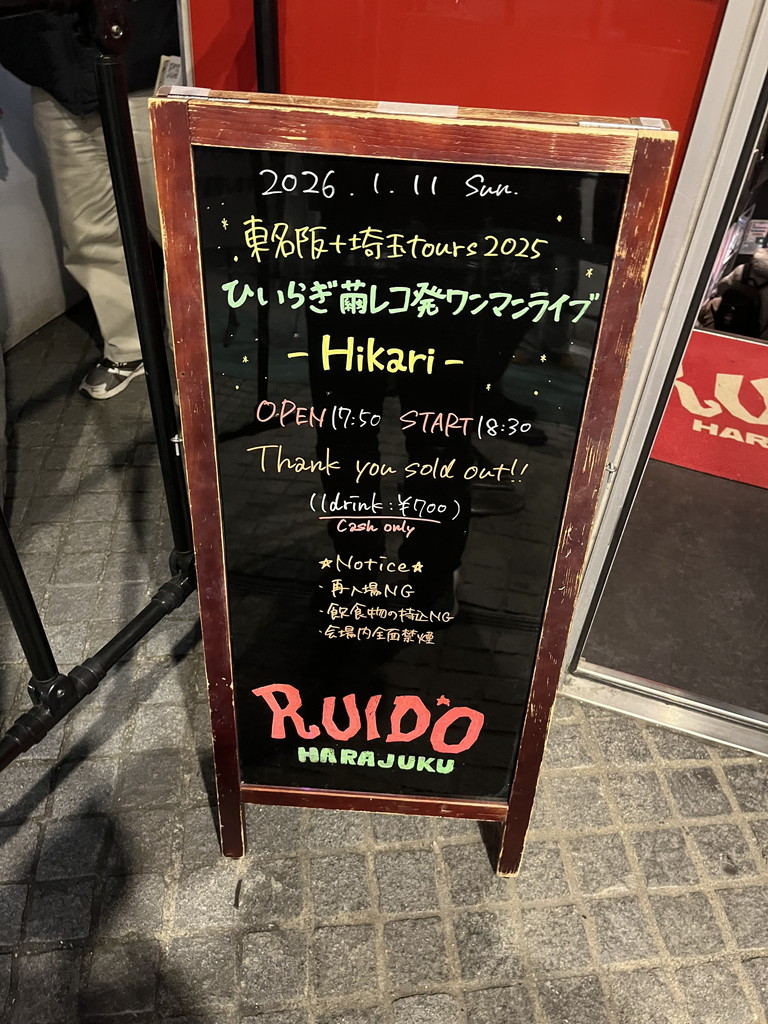 2026.1.11 Sun.
東名阪+埼玉tours2025
ひいらぎ繭レコ発ワンマンライブ
-Hikari-
OPEN17:50 START18:30
Thank you sold out!!
(1drink:¥700)
Cash only
★Notice★
・再入場NG
・飲食物の持込NG
・会場内全面禁煙
RUIDO
HARAJUKU
RU
HAR